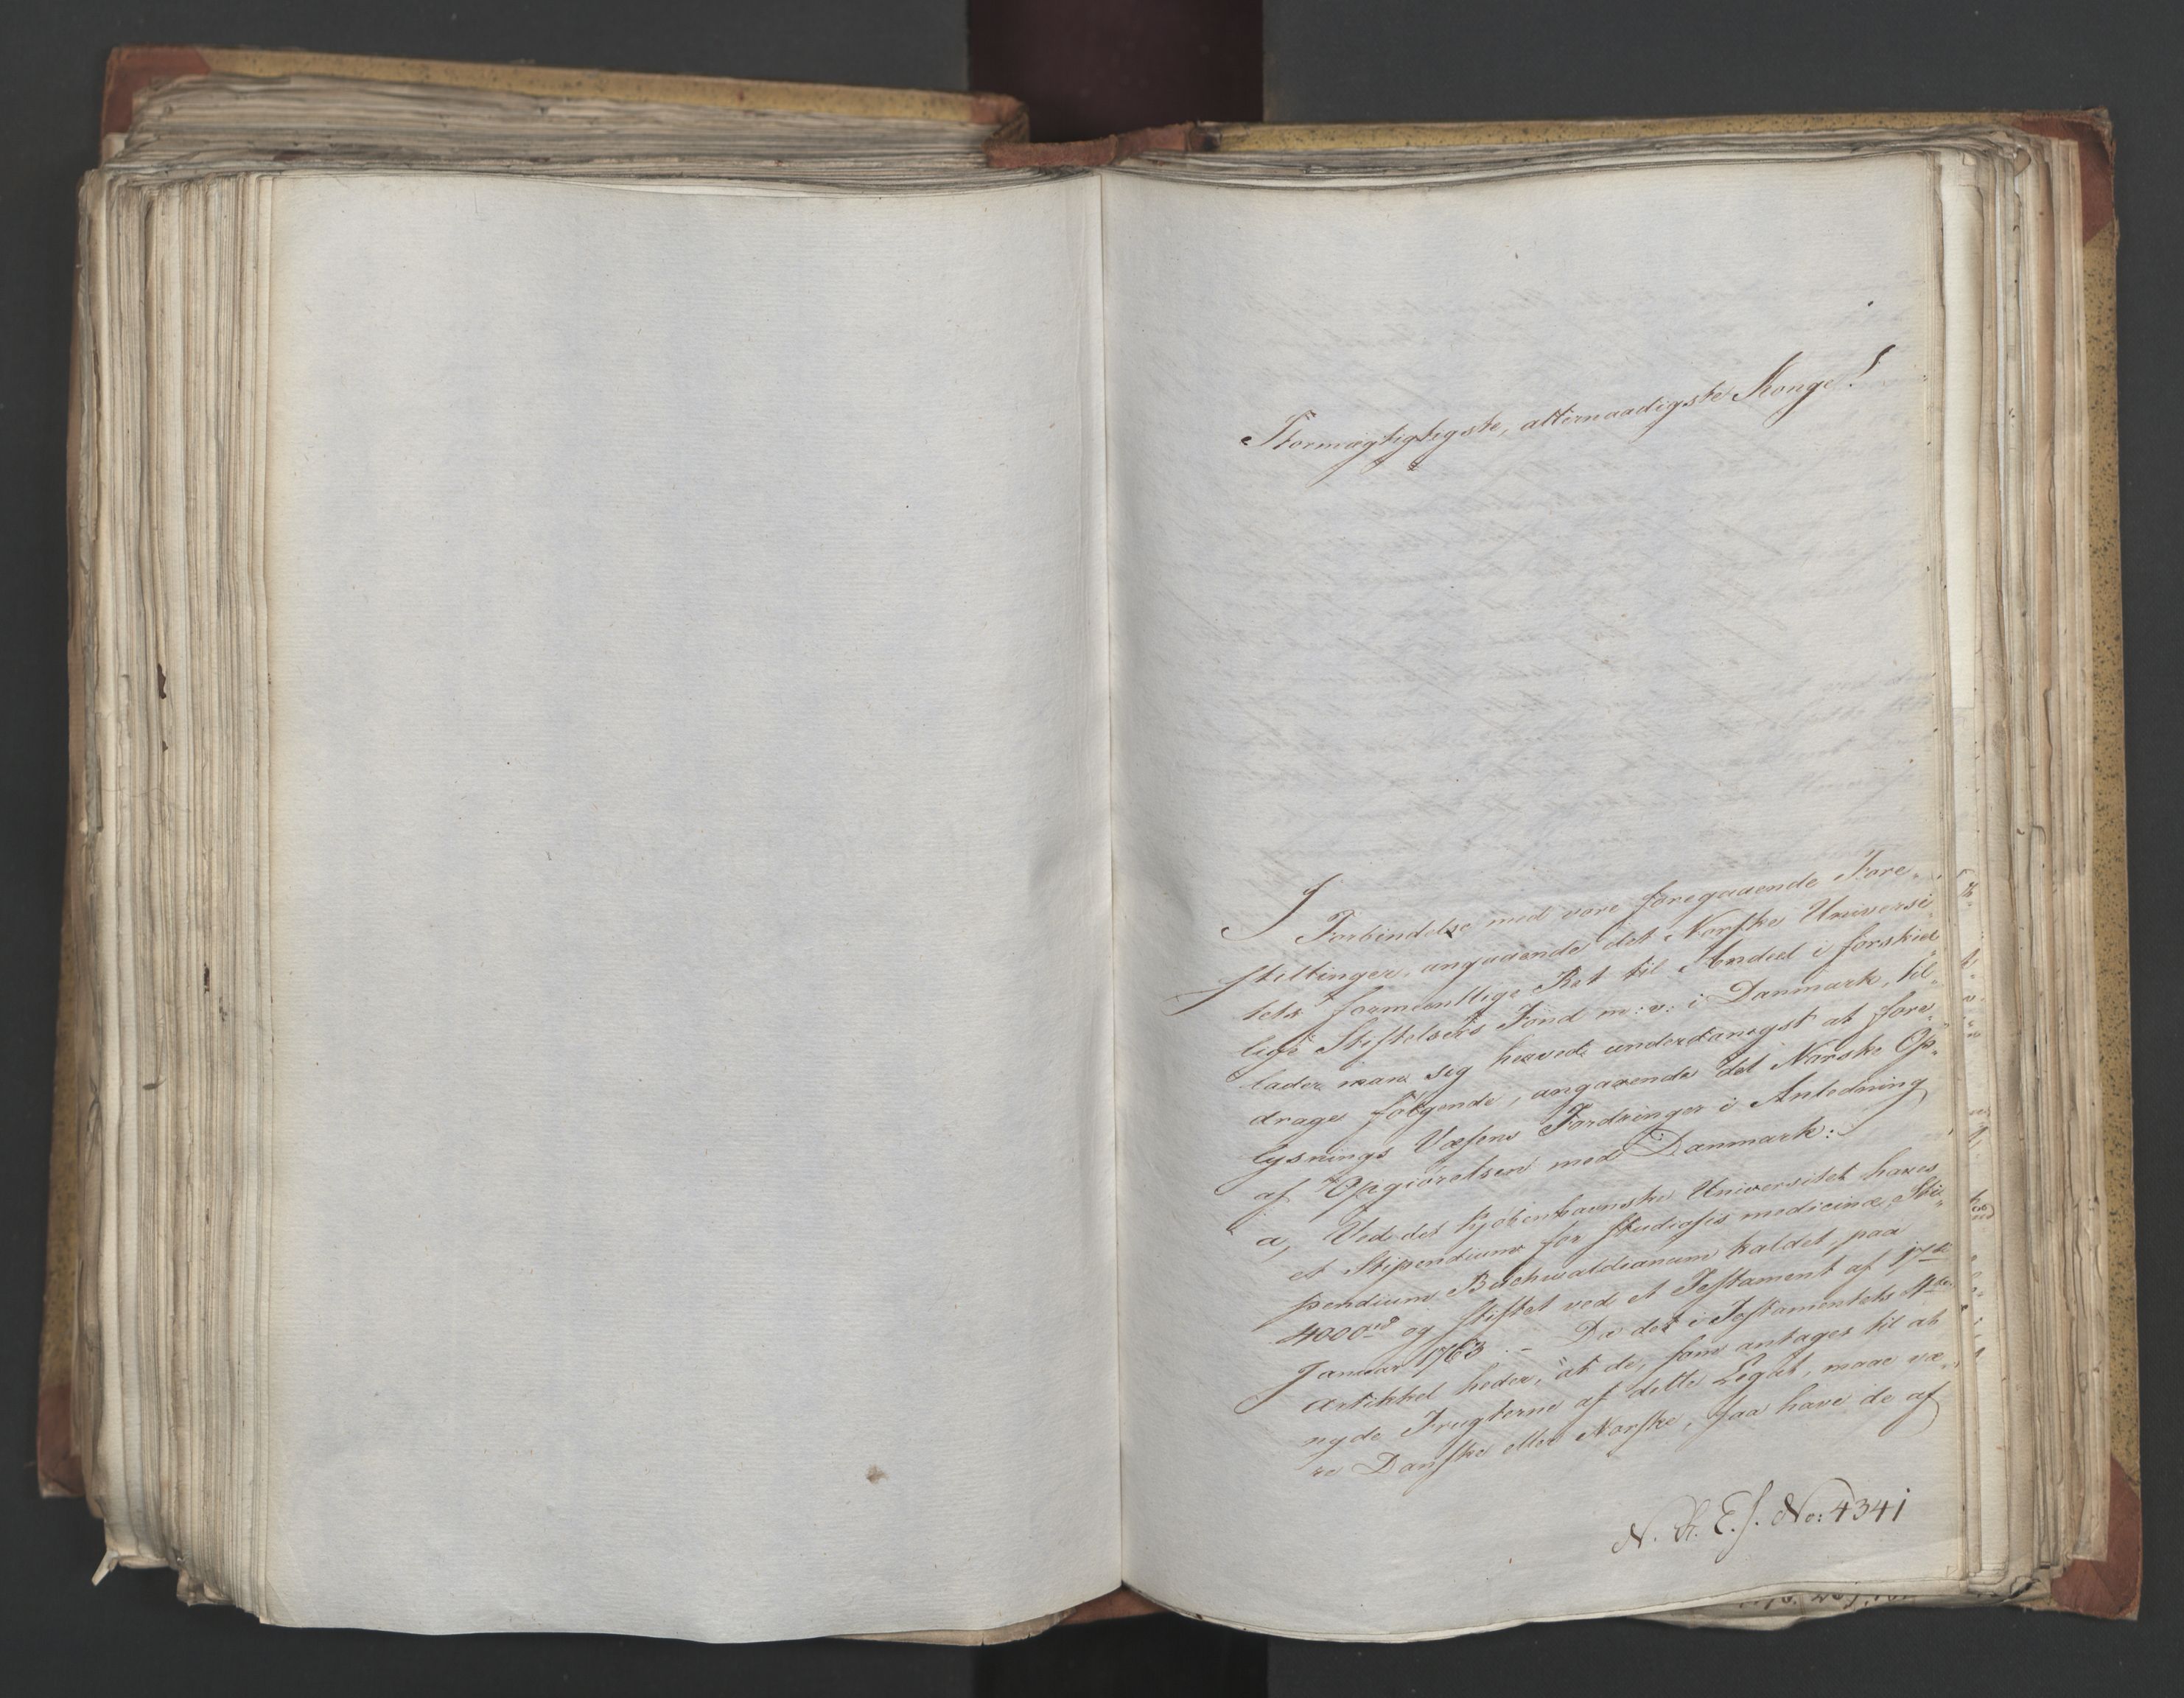 Stormægtigste, allernaadigste Konge!
I Forbindelse med vore foregaaende Fore-
stillinger, angaaende det Norske Universi-
tets formeentlige Ret til Andeel i forskiel-
lige Stiftelsers Fond m: v: i Danmark, til-
lader man sig herved underdanigst at fore-
drage følgende, angaaende det Norske Op-
lysnings Væsens Fordringer i Anledning
af Opgiørelsen med Danmark:
a, Ved det Kjøbenhavnske Universitet haves
et Stipendium for studiosis medicinæ, Sti-
pendium Buchwaldianum kaldet, paa
4000rd og stiftet ved et Testament af 17de
Januar 1763. - Da det i Testamentets 4de
Artikkel heder, "at de, som antages til at
nyde Frugterne af dette Legat, maae væ-
re Danske eller Norske, saa have de af
N. R. E. S. No: 4341